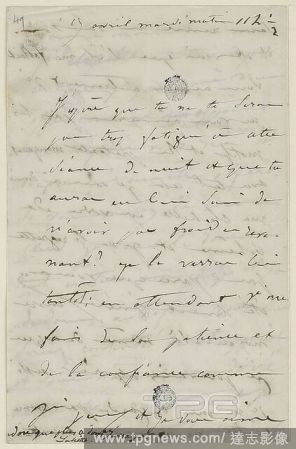 avril mardi matin 11h ½
J'espère que tu ne te seras
pas trop fatigué à cette
séance de nuit et que tu
auras eu bien soin de
n'avoir pas froid en reve-
nant. je le verrai bien
tantôt; en attendant je me
fais de la patience et
de la confiance comme
je puis et je vous aime
www.tpgnews.com / 達志影像